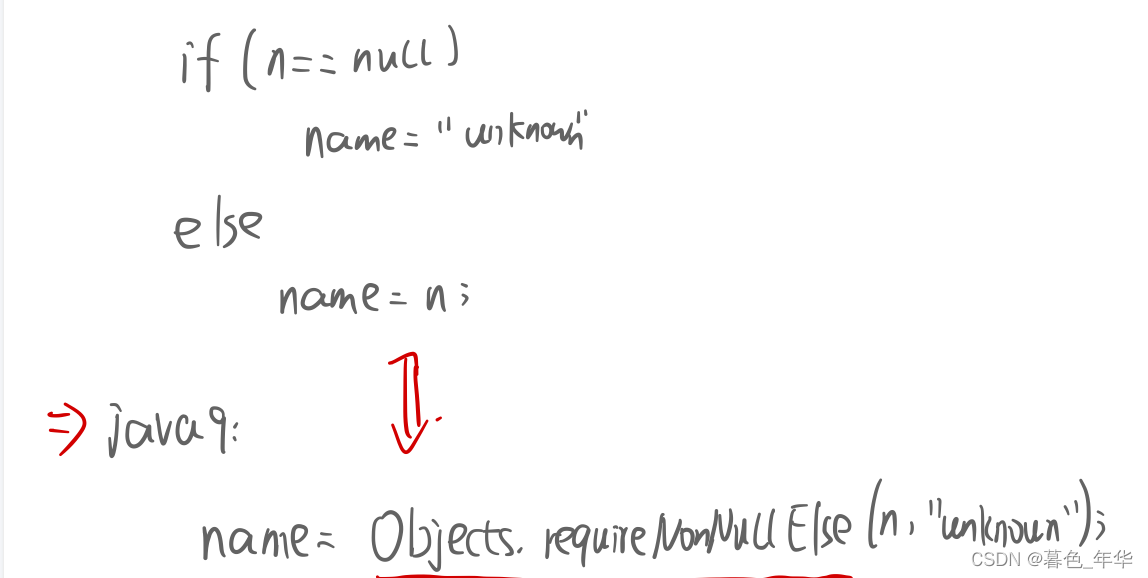 if (n==null)
name="unknown"
else
name=n;
=> java9:
name= Objects.requireNonNullElse(n,"unknown");
CSDN @暮色_年华